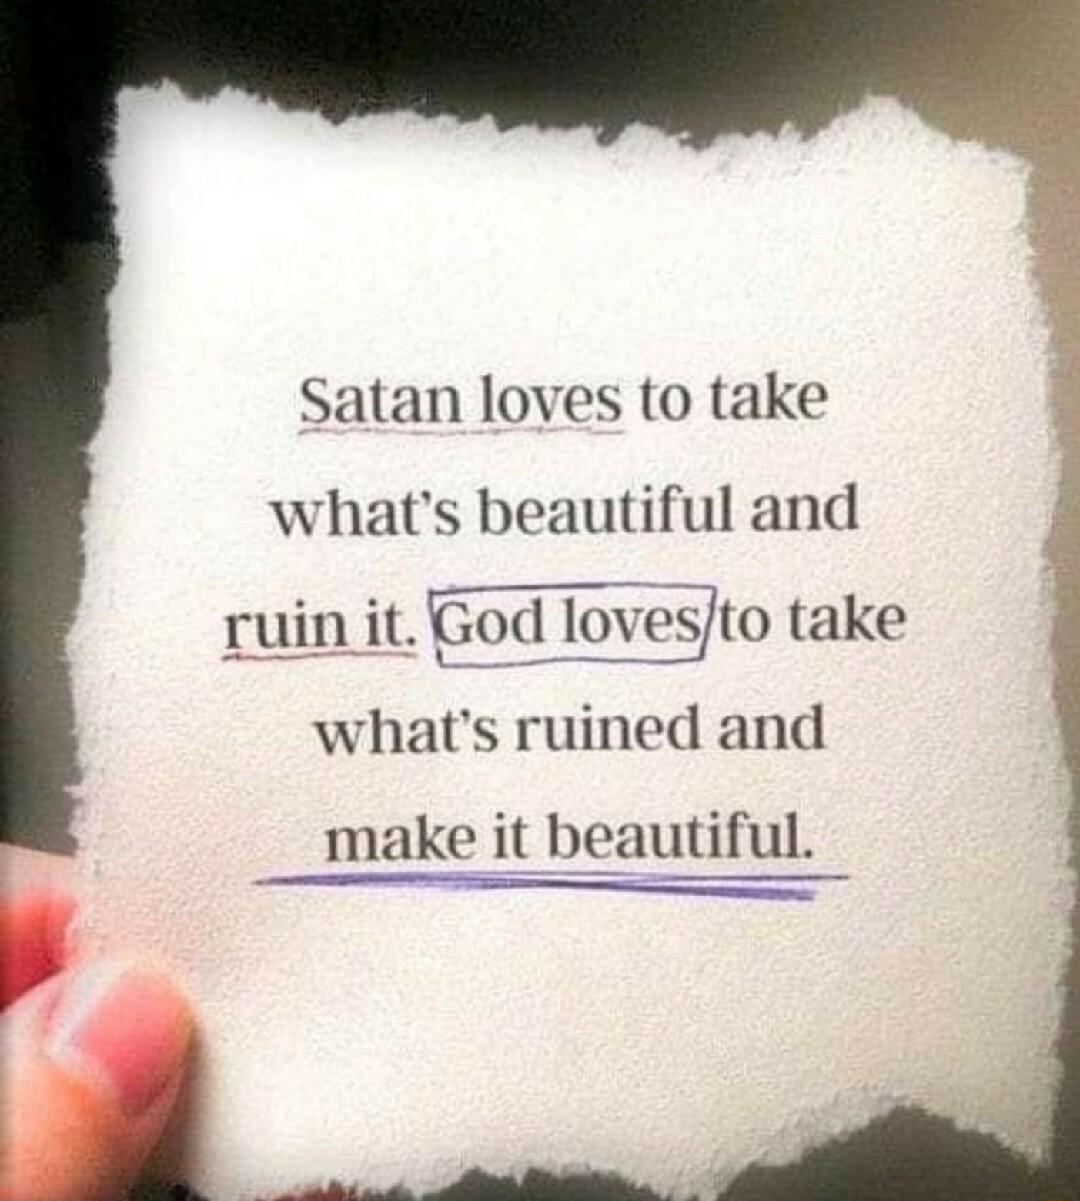 Satan loves to take
what's beautiful and
ruin it. God loves to take
what's ruined and
make it beautiful.